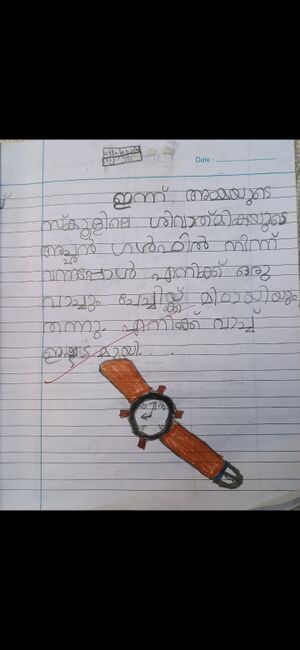 Date :
ഇന്ന് അമ്മയുടെ
സ്കൂളിലെ ശിവാത്മികയുടെ
അച്ഛൻ ഗൾഫിൽ നിന്ന്
വന്നപ്പോൾ എനിക്ക് ഒരു
വാച്ചും ചേച്ചിയ്ക്ക് മിഠായിയും
തന്നു. എനിക്ക് വാച്ച്
ഇഷ്ടമായി.